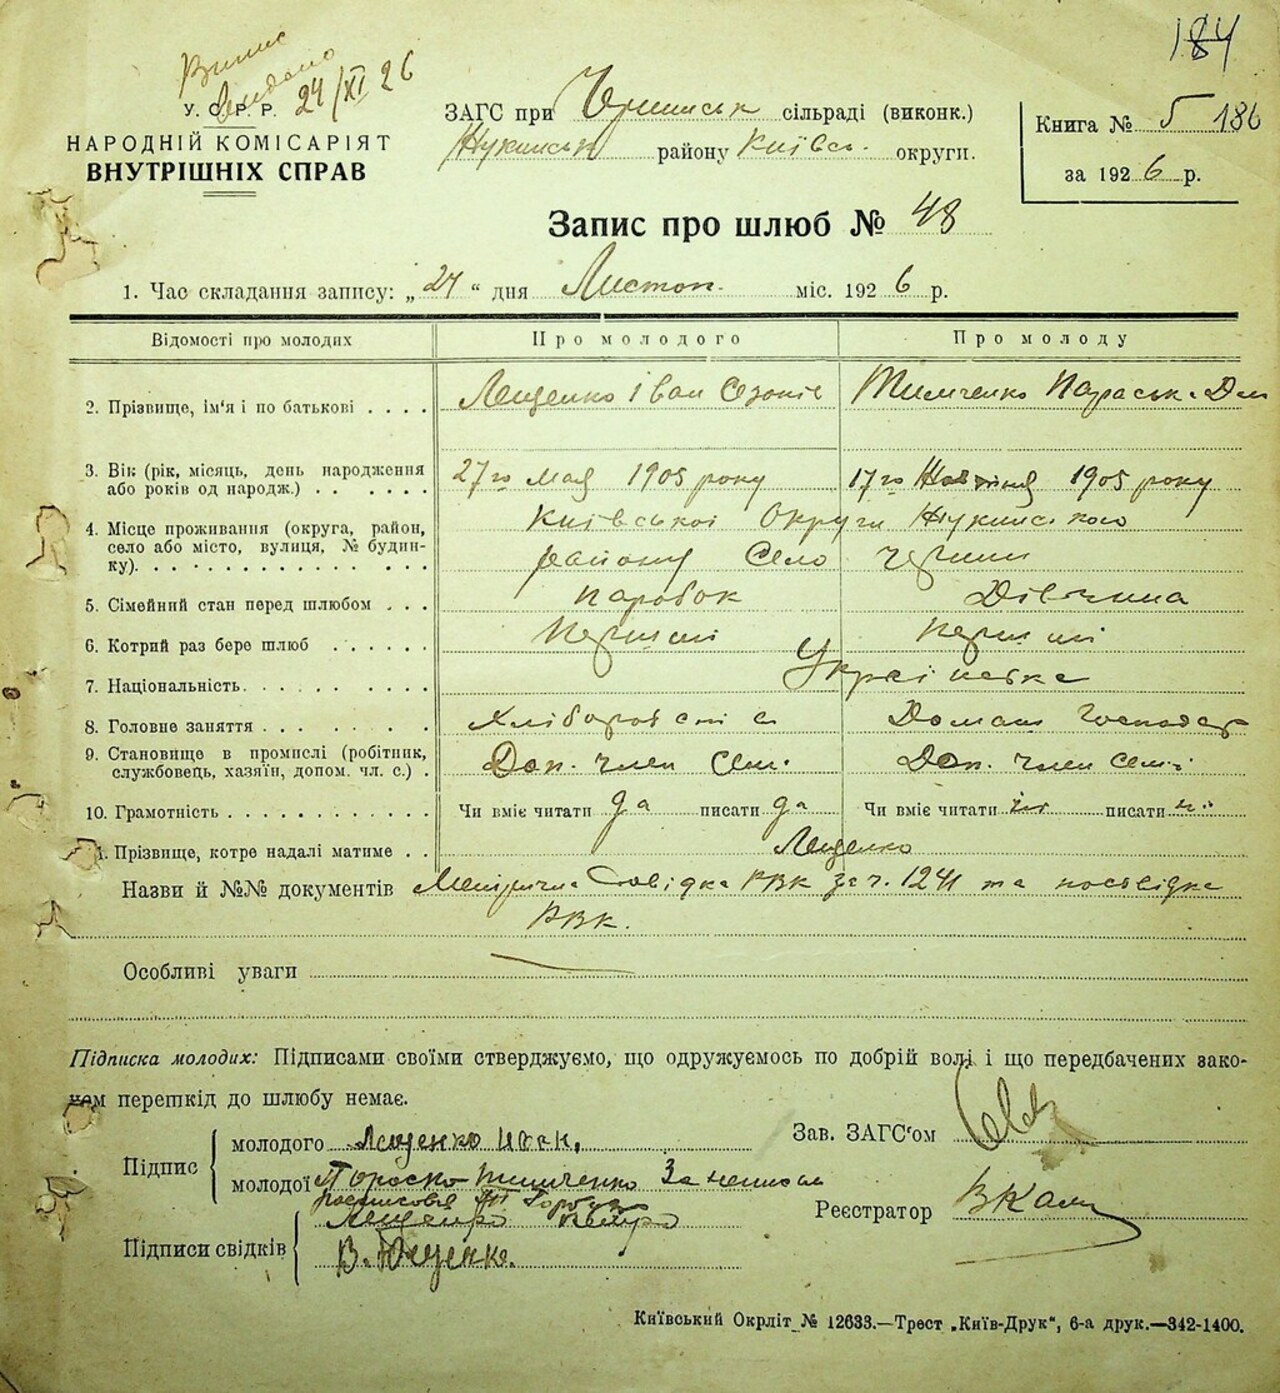 184
Випис
видано
24/XI 26
У. С. Р. Р.
НАРОДНІЙ КОМІСАРІЯТ
ВНУТРІШНІХ СПРАВ
ЗАГС при сільраді (виконк.)
району Київсь. округи.
Книга № 5 186
за 1926 р.
Запис про шлюб № 48
1. Час складання запису: „24“ дня Листоп. міс. 1926 р.
Відомості про молодих Про молодого Про молоду
2. Прізвище, ім'я і по батькові . . . . Лещенко Іван Тимченко Параськ.
3. Вік (рік, місяць, день народження або років од народж.) . . . . . . 27го мая 1905 року 17го 1905 року
4. Місце проживання (округа, район, село або місто, вулиця, № будинку). Київської Округи
району Село
5. Сімейний стан перед шлюбом . . . Паробок Дівчина
6. Котрий раз бере шлюб . . . . . . Перший Перший
7. Національність. . . . . . . . . .
8. Головне заняття . . . . . . . . . Домаш господар
9. Становище в промислі (робітник, службовець, хазяїн, допом. чл. с.) . Доп. член сем. Доп. член семї
10. Грамотність . . . . . . . . . . . . Чи вміє читати да писати да Чи вміє читати ні писати ні
11. Прізвище, котре надалі матиме . . Лещенко
Назви й №№ документів Метрична РВК за ч. 1241 та посвідка
РВК.
Особливі уваги
Підписка молодих: Підписами своїми стверджуємо, що одружуємось по добрій волі і що передбачених зако-
ном перешкід до шлюбу немає.
Підпис
молодого Лещенко Иван.
молодої Тимченко За неписьм
Зав. ЗАГС'ом
Реєстратор
Підписи свідків
В. Ющенко.
Київський Окрліт № 12633.—Трест „Київ-Друк“, 6-а друк.—342-1400.